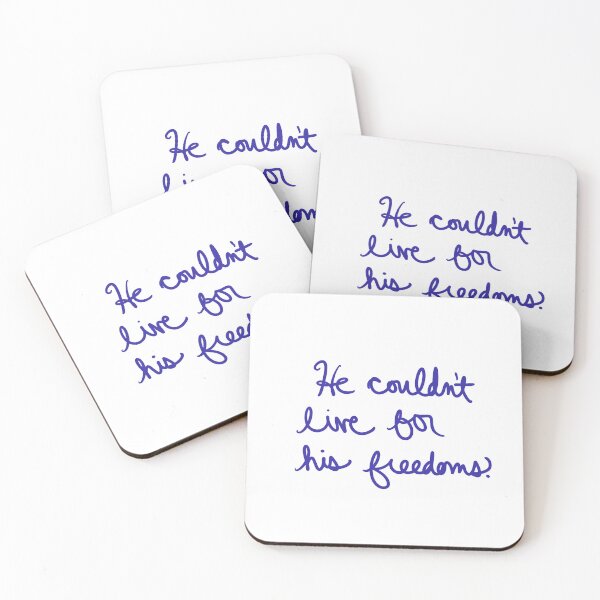 He couldn't
He couldn't
live for
his freedoms?
He couldn't
live for
his
He couldn't
live for
his freedoms?